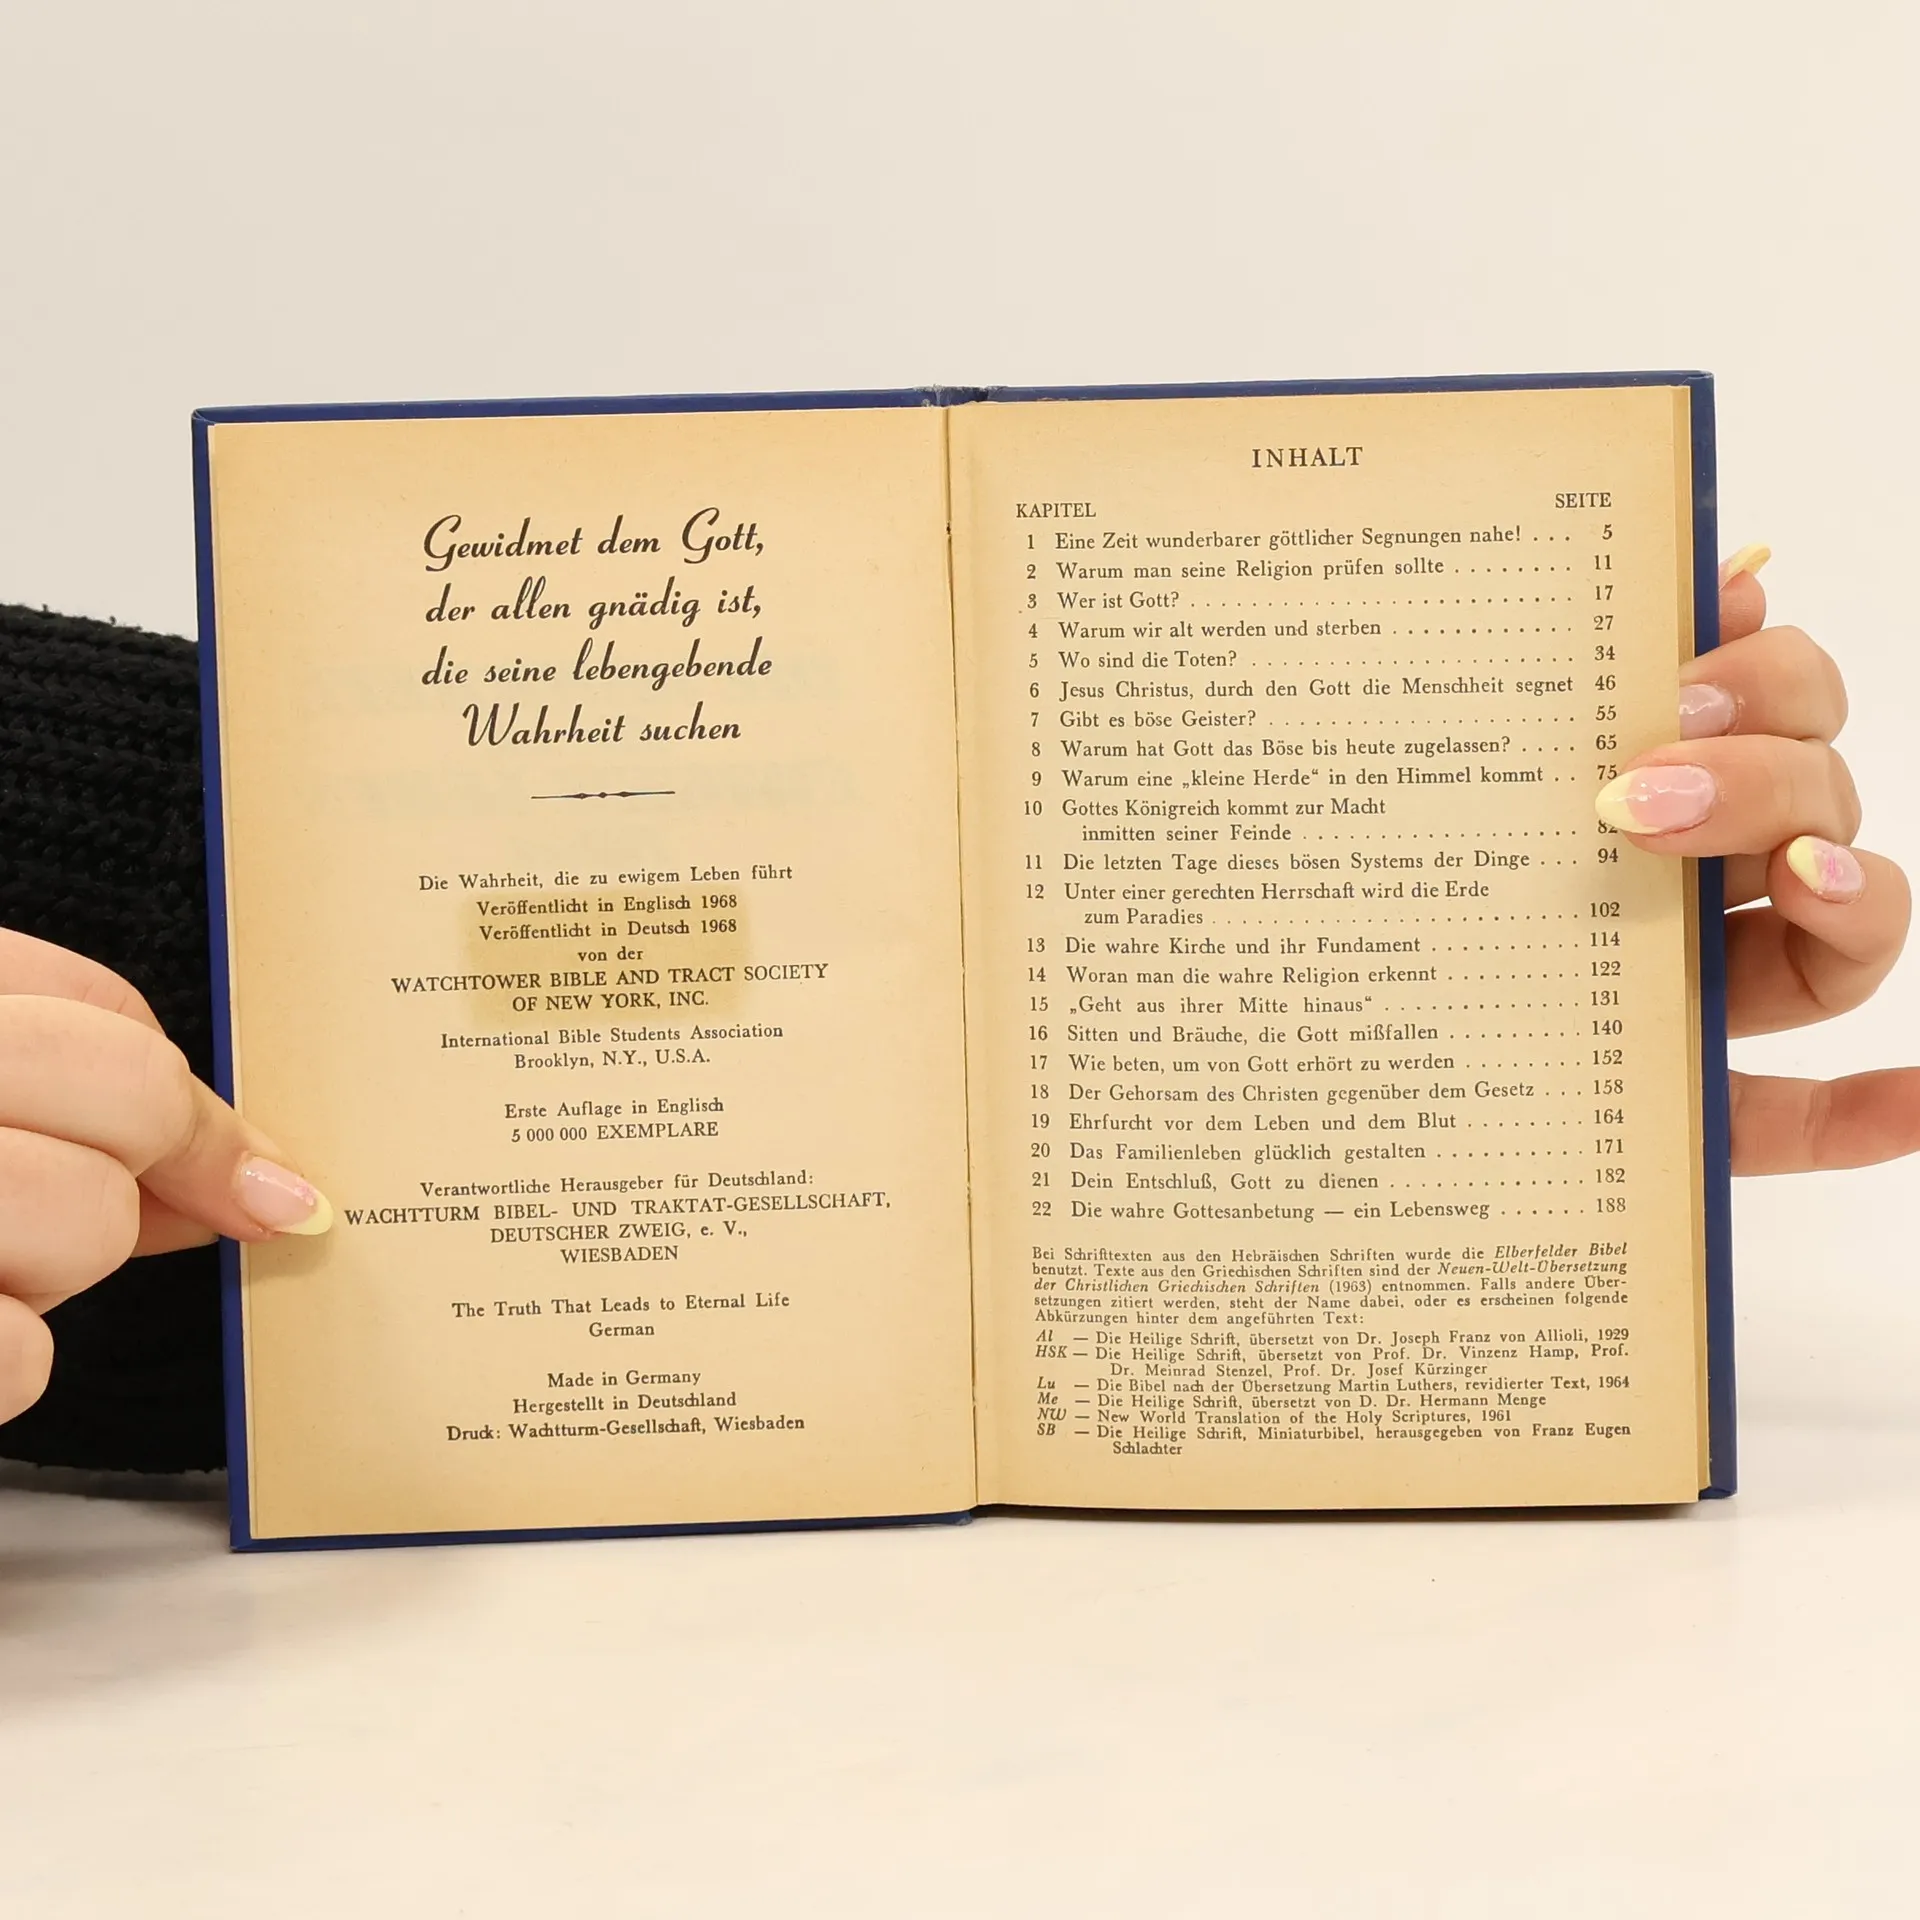 Gewidmet dem Gott,
der allen gnädig ist,
die seine lebengebende
Wahrheit suchen
Die Wahrheit, die zu ewigem Leben führt
Veröffentlicht in Englisch 1968
Veröffentlicht in Deutsch 1968
von der
WATCHTOWER BIBLE AND TRACT SOCIETY
OF NEW YORK, INC.
International Bible Students Association
Brooklyn, N.Y., U.S.A.
Erste Auflage in Englisch
5 000 000 EXEMPLARE
Verantwortliche Herausgeber für Deutschland:
WACHTTURM BIBEL- UND TRAKTAT-GESELLSCHAFT,
DEUTSCHER ZWEIG, e. V.,
WIESBADEN
The Truth That Leads to Eternal Life
German
Made in Germany
Hergestellt in Deutschland
Druck: Wachtturm-Gesellschaft, Wiesbaden
INHALT
KAPITEL SEITE
1 Eine Zeit wunderbarer göttlicher Segnungen nahe! . . . 5
2 Warum man seine Religion prüfen sollte . . . . . . . . 11
3 Wer ist Gott? . . . . . . . . . . . . . . . . . . . . . . . . . 17
4 Warum wir alt werden und sterben . . . . . . . . . . . . 27
5 Wo sind die Toten? . . . . . . . . . . . . . . . . . . . . . 34
6 Jesus Christus, durch den Gott die Menschheit segnet 46
7 Gibt es böse Geister? . . . . . . . . . . . . . . . . . . . . 55
8 Warum hat Gott das Böse bis heute zugelassen? . . . . 65
9 Warum eine „kleine Herde“ in den Himmel kommt . . 75
10 Gottes Königreich kommt zur Macht
inmitten seiner Feinde . . . . . . . . . . . . . . . . . . 82
11 Die letzten Tage dieses bösen Systems der Dinge . . . 94
12 Unter einer gerechten Herrschaft wird die Erde
zum Paradies . . . . . . . . . . . . . . . . . . . . . . . . 102
13 Die wahre Kirche und ihr Fundament . . . . . . . . . . 114
14 Woran man die wahre Religion erkennt . . . . . . . . . 122
15 „Geht aus ihrer Mitte hinaus“ . . . . . . . . . . . . . 131
16 Sitten und Bräuche, die Gott mißfallen . . . . . . . . . 140
17 Wie beten, um von Gott erhört zu werden . . . . . . . . 152
18 Der Gehorsam des Christen gegenüber dem Gesetz . . . 158
19 Ehrfurcht vor dem Leben und dem Blut . . . . . . . . 164
20 Das Familienleben glücklich gestalten . . . . . . . . . . 171
21 Dein Entschluß, Gott zu dienen . . . . . . . . . . . . . 182
22 Die wahre Gottesanbetung — ein Lebensweg . . . . . . 188
Bei Schrifttexten aus den Hebräischen Schriften wurde die Elberfelder Bibel
benutzt. Texte aus den Griechischen Schriften sind der Neuen-Welt-Übersetzung
der Christlichen Griechischen Schriften (1963) entnommen. Falls andere Über-
setzungen zitiert werden, steht der Name dabei, oder es erscheinen folgende
Abkürzungen hinter dem angeführten Text:
Al — Die Heilige Schrift, übersetzt von Dr. Joseph Franz von Allioli, 1929
HSK — Die Heilige Schrift, übersetzt von Prof. Dr. Vinzenz Hamp, Prof.
Dr. Meinrad Stenzel, Prof. Dr. Josef Kürzinger
Lu — Die Bibel nach der Übersetzung Martin Luthers, revidierter Text, 1964
Me — Die Heilige Schrift, übersetzt von D. Dr. Hermann Menge
NW — New World Translation of the Holy Scriptures, 1961
SB — Die Heilige Schrift, Miniaturbibel, herausgegeben von Franz Eugen
Schlachter